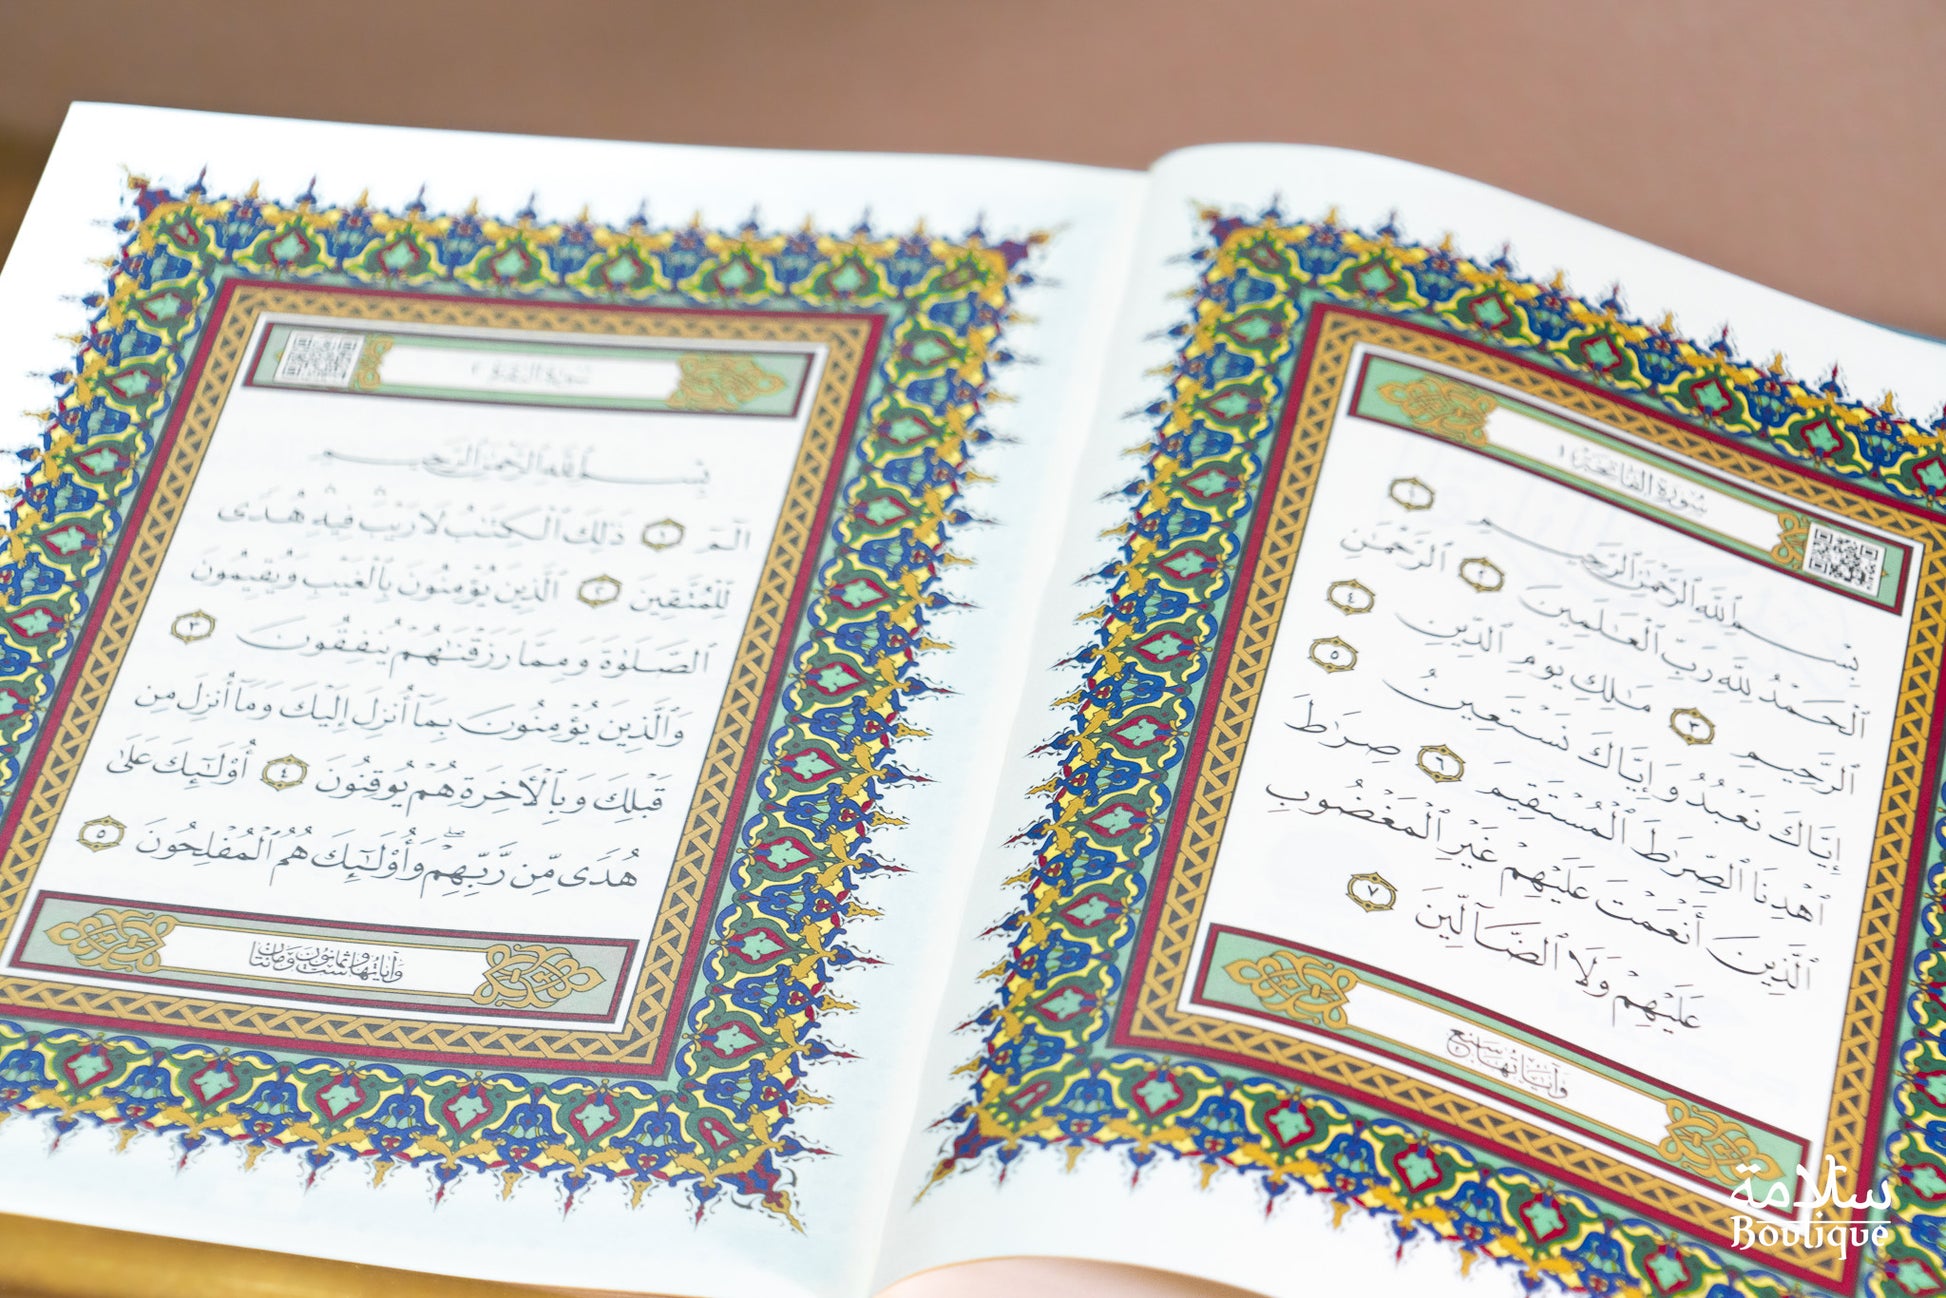 سُورَةُ الفَاتِحَةِ ١
بِسْمِ ٱللَّهِ ٱلرَّحْمَٰنِ ٱلرَّحِيمِ ١
ٱلْحَمْدُ لِلَّهِ رَبِّ ٱلْعَٰلَمِينَ ٢ ٱلرَّحْمَٰنِ
ٱلرَّحِيمِ ٣ مَٰلِكِ يَوْمِ ٱلدِّينِ ٤
إِيَّاكَ نَعْبُدُ وَإِيَّاكَ نَسْتَعِينُ ٥
ٱهْدِنَا ٱلصِّرَٰطَ ٱلْمُسْتَقِيمَ ٦ صِرَٰطَ
ٱلَّذِينَ أَنْعَمْتَ عَلَيْهِمْ غَيْرِ ٱلْمَغْضُوبِ
عَلَيْهِمْ وَلَا ٱلضَّآلِّينَ ٧
وَآيَاتُهَا سَبْعٌ
سُورَةُ البَقَرَةِ ٢
بِسْمِ ٱللَّهِ ٱلرَّحْمَٰنِ ٱلرَّحِيمِ
الٓمٓ ١ ذَٰلِكَ ٱلْكِتَٰبُ لَا رَيْبَۛ فِيهِۛ هُدًى
لِّلْمُتَّقِينَ ٢ ٱلَّذِينَ يُؤْمِنُونَ بِٱلْغَيْبِ وَيُقِيمُونَ
ٱلصَّلَوٰةَ وَمِمَّا رَزَقْنَٰهُمْ يُنفِقُونَ ٣
وَٱلَّذِينَ يُؤْمِنُونَ بِمَآ أُنزِلَ إِلَيْكَ وَمَآ أُنزِلَ مِن
قَبْلِكَ وَبِٱلْأٓخِرَةِ هُمْ يُوقِنُونَ ٤ أُوْلَٰٓئِكَ عَلَىٰ
هُدًى مِّن رَّبِّهِمْۖ وَأُوْلَٰٓئِكَ هُمُ ٱلْمُفْلِحُونَ ٥
وَآيَاتُهَا سِتٌّ وَثَمَانُونَ وَمِائَتَانِ
سلامة
Boutique